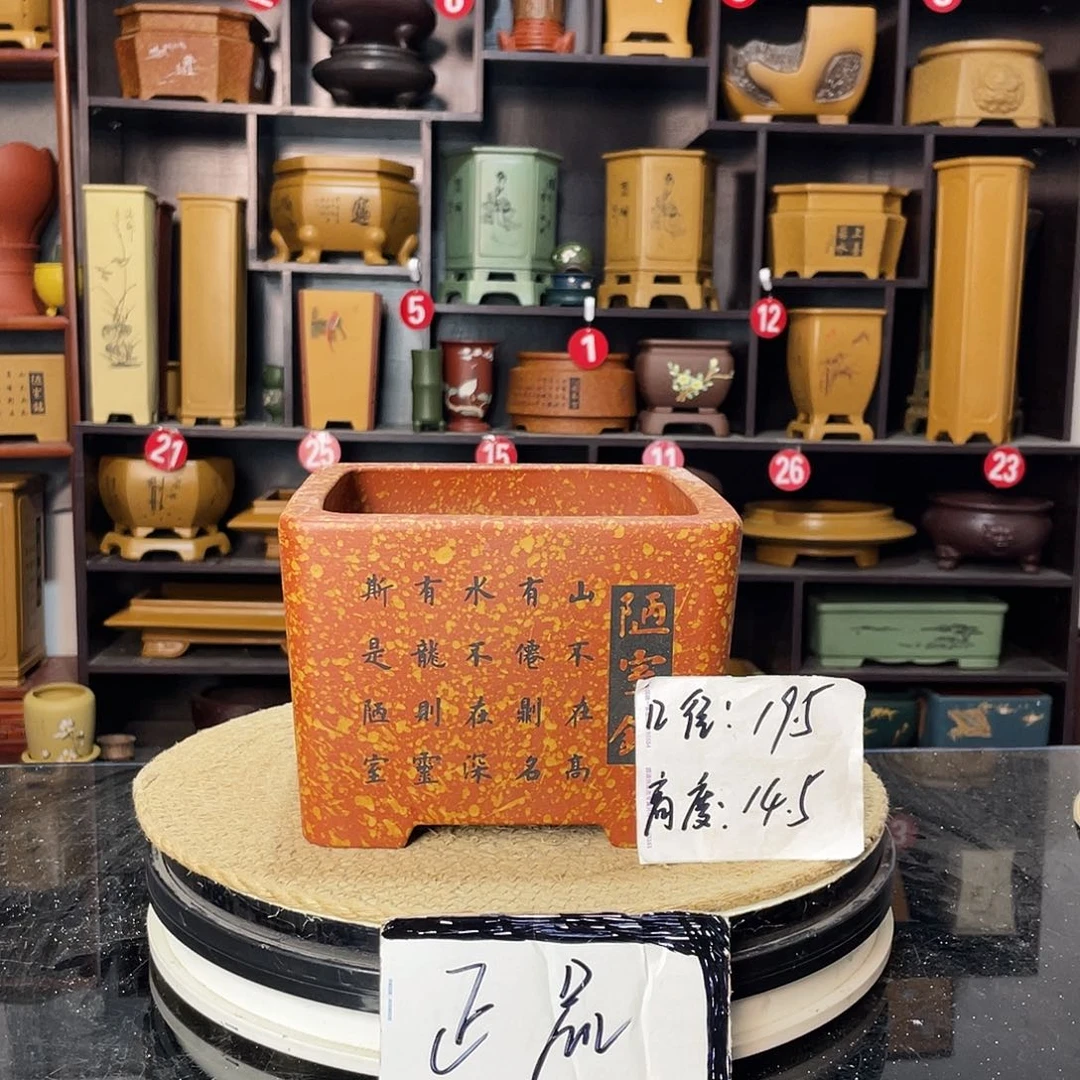 5
1
12
21
25
15
11
26
23
陋室銘
山不在高
有僊則名
水不在深
有龍則靈
斯是陋室
口径：19.5
高度：14.5
正品